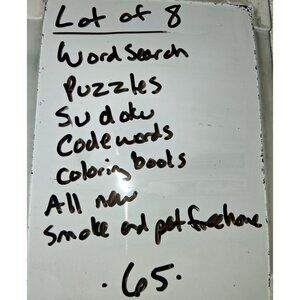 Lot of 8
Word Search
Puzzles
Sudoku
Codewords
Coloring books
All new
Smoke and pet free home
.65.